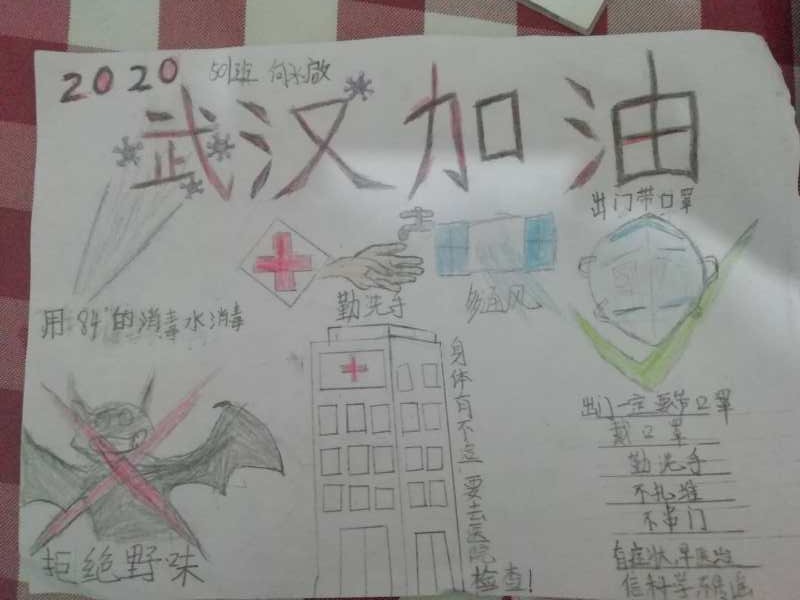 2020 501班
武汉加油
出门带口罩
勤洗手
多通风
用"84"的消毒水消毒
身体有不适 要去医院检查!
出门一定要带口罩
戴口罩
勤洗手
不扎堆
不串门
有症状,早医治
信科学,不传谣
拒绝野味